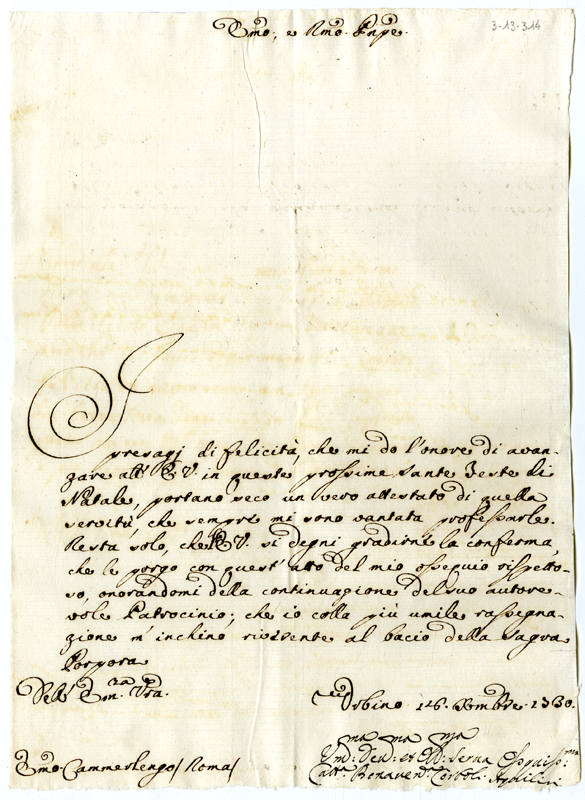 3-13-314
Emo, e Rmo Pnpe.
I presagj di felicità, che mi do l'onore di avan-
zare all' E V. in queste prossime Sante Feste di
Natale, portano seco un vero attestato di quella
servitù, che sempre mi sono vantata professarle.
Resta solo, che l'E V. si degni gradirne la conferma,
che le porgo con quest' atto del mio ossequio rispetto-
so, onorandomi della continuazione del suo autore-
vole Patrocinio; che io colla più umile rassegna-
zione m' inchino riverente al bacio della Sagra
Porpora
Dell' Em.za Vra.
Urbino 16. Xmbre 1730.
Um:ma Dev:ma et Obb:ma Serva Ossequiss:ma
Catt.a Bonaven.
Emo Cammerlengo / Roma /